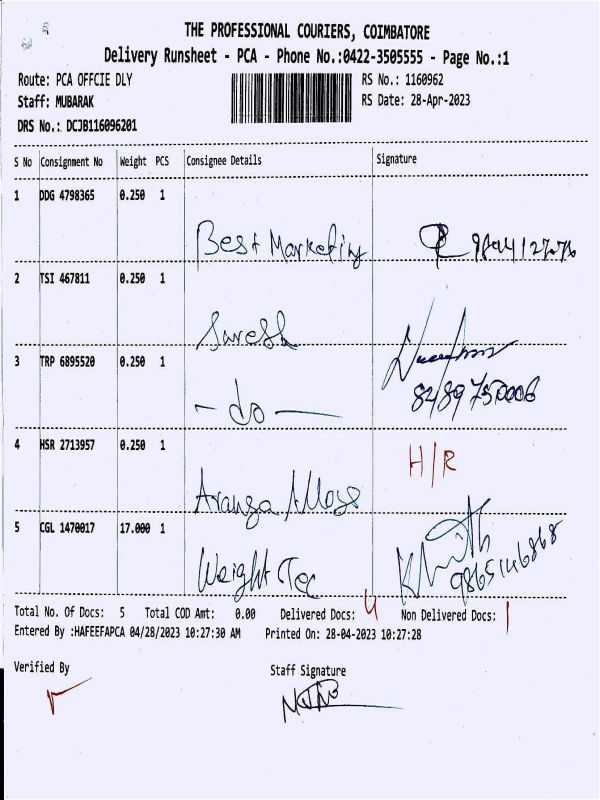 THE PROFESSIONAL COURIERS, COIMBATORE
Delivery Runsheet - PCA - Phone No.:0422-3505555 - Page No.:1
Route: PCA OFFCIE DLY RS No.: 1160962
Staff: MUBARAK RS Date: 28-Apr-2023
DRS No.: DCJB116096201
S No Consignment No Weight PCS Consignee Details Signature
1 DDG 4798365 0.250 1
Best Marketing
2 TSI 467811 0.250 1
Suresh
3 TRP 6895520 0.250 1
8489750006
- do -
4 HSR 2713957 0.250 1
H/R
5 CGL 1470017 17.000 1
Weight Tec 9865146868
Total No. Of Docs: 5 Total COD Amt: 0.00 Delivered Docs: 4 Non Delivered Docs: 1
Entered By :HAFEEFAPCA 04/28/2023 10:27:30 AM Printed On: 28-04-2023 10:27:28
Verified By Staff Signature